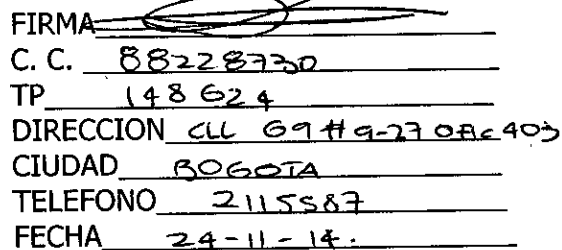 FIRMA
C. C. 88228730
TP 148624
DIRECCION CLL 69 # 9-27 OFIC 403
CIUDAD BOGOTA
TELEFONO 2115587
FECHA 24-11-14.